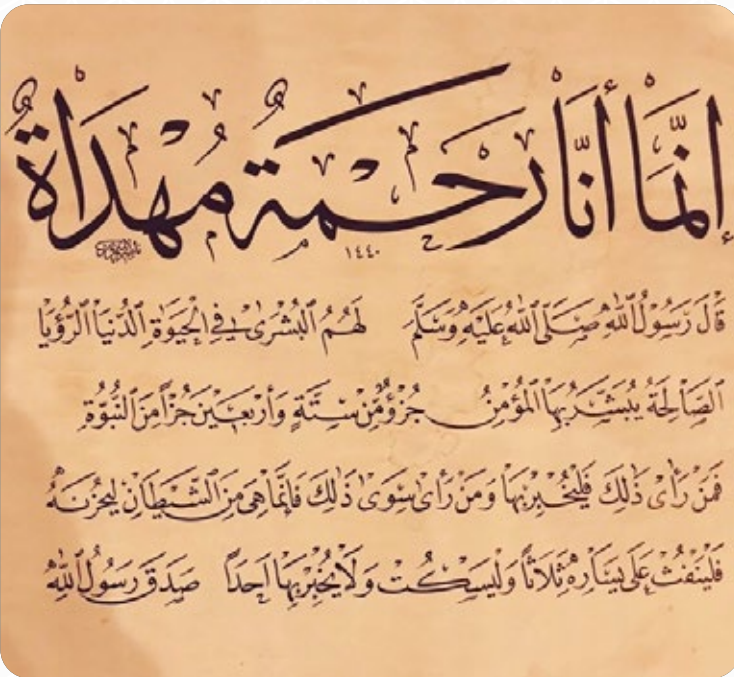 إِنَّمَا أَنَا رَحْمَةٌ مُهْدَاةٌ
١٤٤٠
قَالَ رَسُولُ اللهِ صَلَّى اللهُ عَلَيْهِ وَسَلَّمَ لَهُمُ الْبُشْرَىٰ فِي الْحَيٰوةِ الدُّنْيَا الرُّؤْيَا
الصَّالِحَةُ يُبَشَّرُ بِهَا الْمُؤْمِنُ جُزْؤٌ مِّنْ سِتَّةٍ وَأَرْبَعِينَ جُزْأً مِنَ النُّبُوَّةِ
فَمَنْ رَأَىٰ ذٰلِكَ فَلْيُخْبِرْ بِهَا وَمَنْ رَأَىٰ سِوَىٰ ذٰلِكَ فَإِنَّمَا هِيَ مِنَ الشَّيْطَانِ لِيُحْزِنَهُ
فَلْيَنْفُثْ عَلَىٰ يَسَارِهِ ثَلَاثًا وَلْيَسْكُتْ وَلَا يُخْبِرْ بِهَا أَحَدًا صَدَقَ رَسُولُ اللهِ